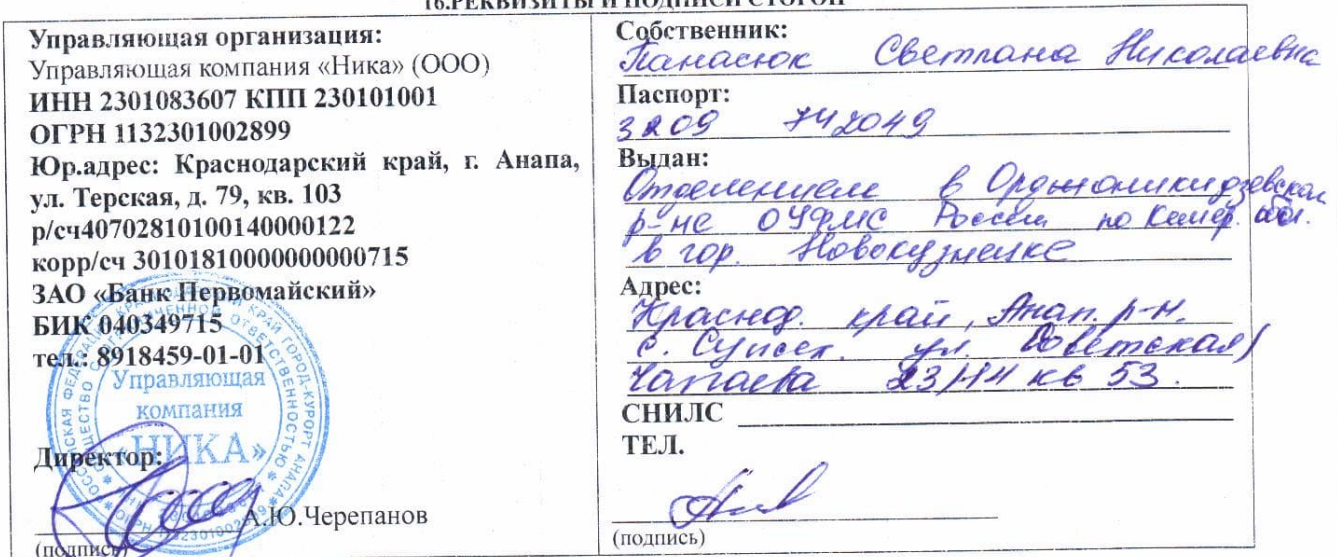 16.РЕКВИЗИТЫ И ПОДПИСИ СТОРОН
Управляющая организация:
Управляющая компания «Ника» (ООО)
ИНН 2301083607 КПП 230101001
ОГРН 1132301002899
Юр.адрес: Краснодарский край, г. Анапа,
ул. Терская, д. 79, кв. 103
р/сч40702810100140000122
корр/сч 30101810000000000715
ЗАО «Банк Первомайский»
БИК 040349715
тел.: 8918459-01-01
Управляющая
компания
«НИКА»
Директор:
А.Ю.Черепанов
(подпись)
Собственник:
Панасюк Светлана Николаевна
Паспорт:
3209 742049
Выдан:
Отделением в Орджоникидзевском
р-не ОУФМС России по Кемер. обл.
в гор. Новокузнецке
Адрес:
Краснод. край, Анап. р-н.
с. Супсех. ул. Советская/
Чапаева 23/14 кв 53.
СНИЛС
ТЕЛ.
(подпись)